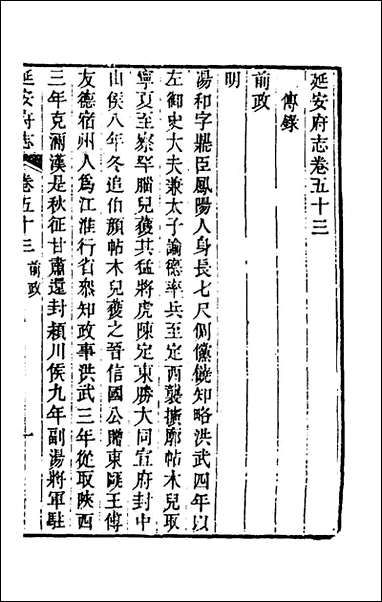 延安府志卷五十三
傳錄
前政
明
湯和字鼎臣鳳陽人身長七尺倜儻饒知略洪武四年以
左御史大夫兼太子諭德率兵至定西襲擴廓帖木兒取
寧夏至察罕腦兒獲其猛將虎陳定東勝大同宣府封中
山侯八年冬追伯顏帖木兒獲之晉信國公贈東甌王傅
友德宿州人爲江淮行省叅知政事洪武三年從取陝西
三年克兩漢是秋征甘肅還封潁川侯九年副湯將軍駐
延安府志
卷五十三
前政
一